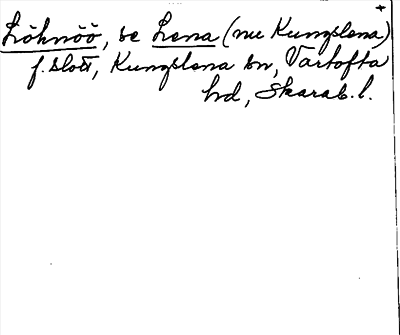 Löhnöö, se Lena (nu Kungslena)
f. slott, Kungslena sn, Vartofta
hd, Skarab. l.